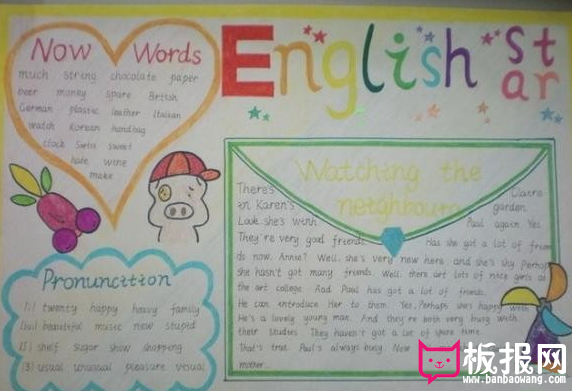 Now Words
much string chocolate paper
beer money spare British
German plastic leather Italian
watch Korean handbag
clock Swiss sweet
hate wine
make
English
St
ar
Watching the
neighbours
There's Claire
in Karen's garden.
Look she's with Paul again. Yes.
They're very good friends. Has she got a lot of frien
ds now. Annie? Well, she's very now here and she's shy. Perhaps
she hasn't got many friends. Well, there art lots of nice girls at
the art college. And Paul has got a lot of friends.
He can introduce Her to them. Yes, Perhaps she's happy with
He's a lovely young man. And they're both very busy with
their studies. They haven't got a lot of spare time.
That's true. Paul's always busy. Now
mother...
Pronuncition
twenty happy heavy family
beautiful music new stupid
[ʃ] shelf sugar show shopping
[ʒ] usual unusual pleasure vesual
板报网
www.banbaowang.com